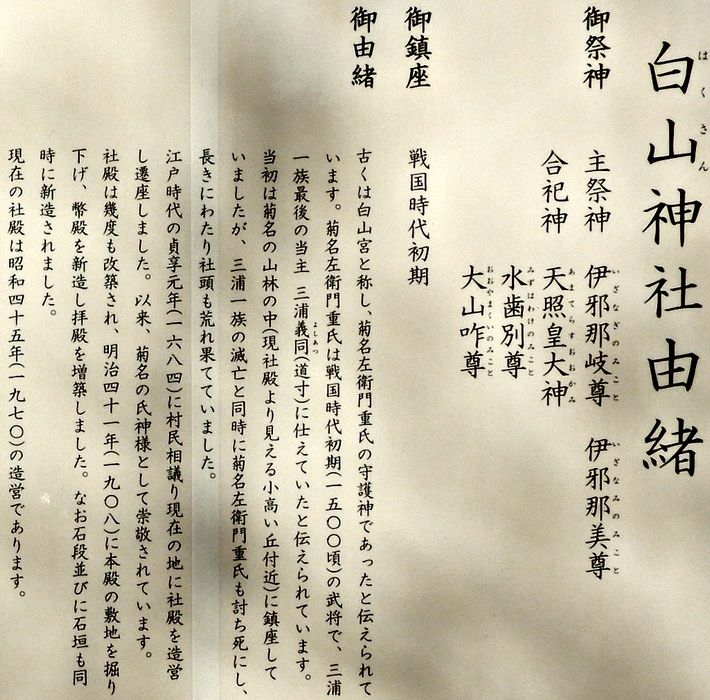 白山神社由緒
はくさん
御祭神 主祭神 伊邪那岐尊 伊邪那美尊
いざなぎのみこと いざなみのみこと
合祀神 天照皇大神
あまてらすおおかみ
水歯別尊
みずはわけのみこと
大山咋尊
おおやまくいのみこと
御鎮座 戦国時代初期
御由緒
古くは白山宮と称し、菊名左衛門重氏の守護神であったと伝えられて
います。菊名左衛門重氏は戦国時代初期(一五〇〇頃)の武将で、三浦
一族最後の当主 三浦義同(道寸)に仕えていたと伝えられています。
よしあつ
当初は菊名の山林の中(現社殿より見える小高い丘付近)に鎮座して
いましたが、三浦一族の滅亡と同時に菊名左衛門重氏も討ち死にし、
長きにわたり社頭も荒れ果てていました。
江戸時代の貞享元年(一六八四)に村民相議り現在の地に社殿を造営
し遷座しました。以来、菊名の氏神様として崇敬されています。
社殿は幾度も改築され、明治四十一年(一九〇八)に本殿の敷地を掘り
下げ、幣殿を新造し拝殿を増築しました。なお石段並びに石垣も同
時に新造されました。
現在の社殿は昭和四十五年(一九七〇)の造営であります。